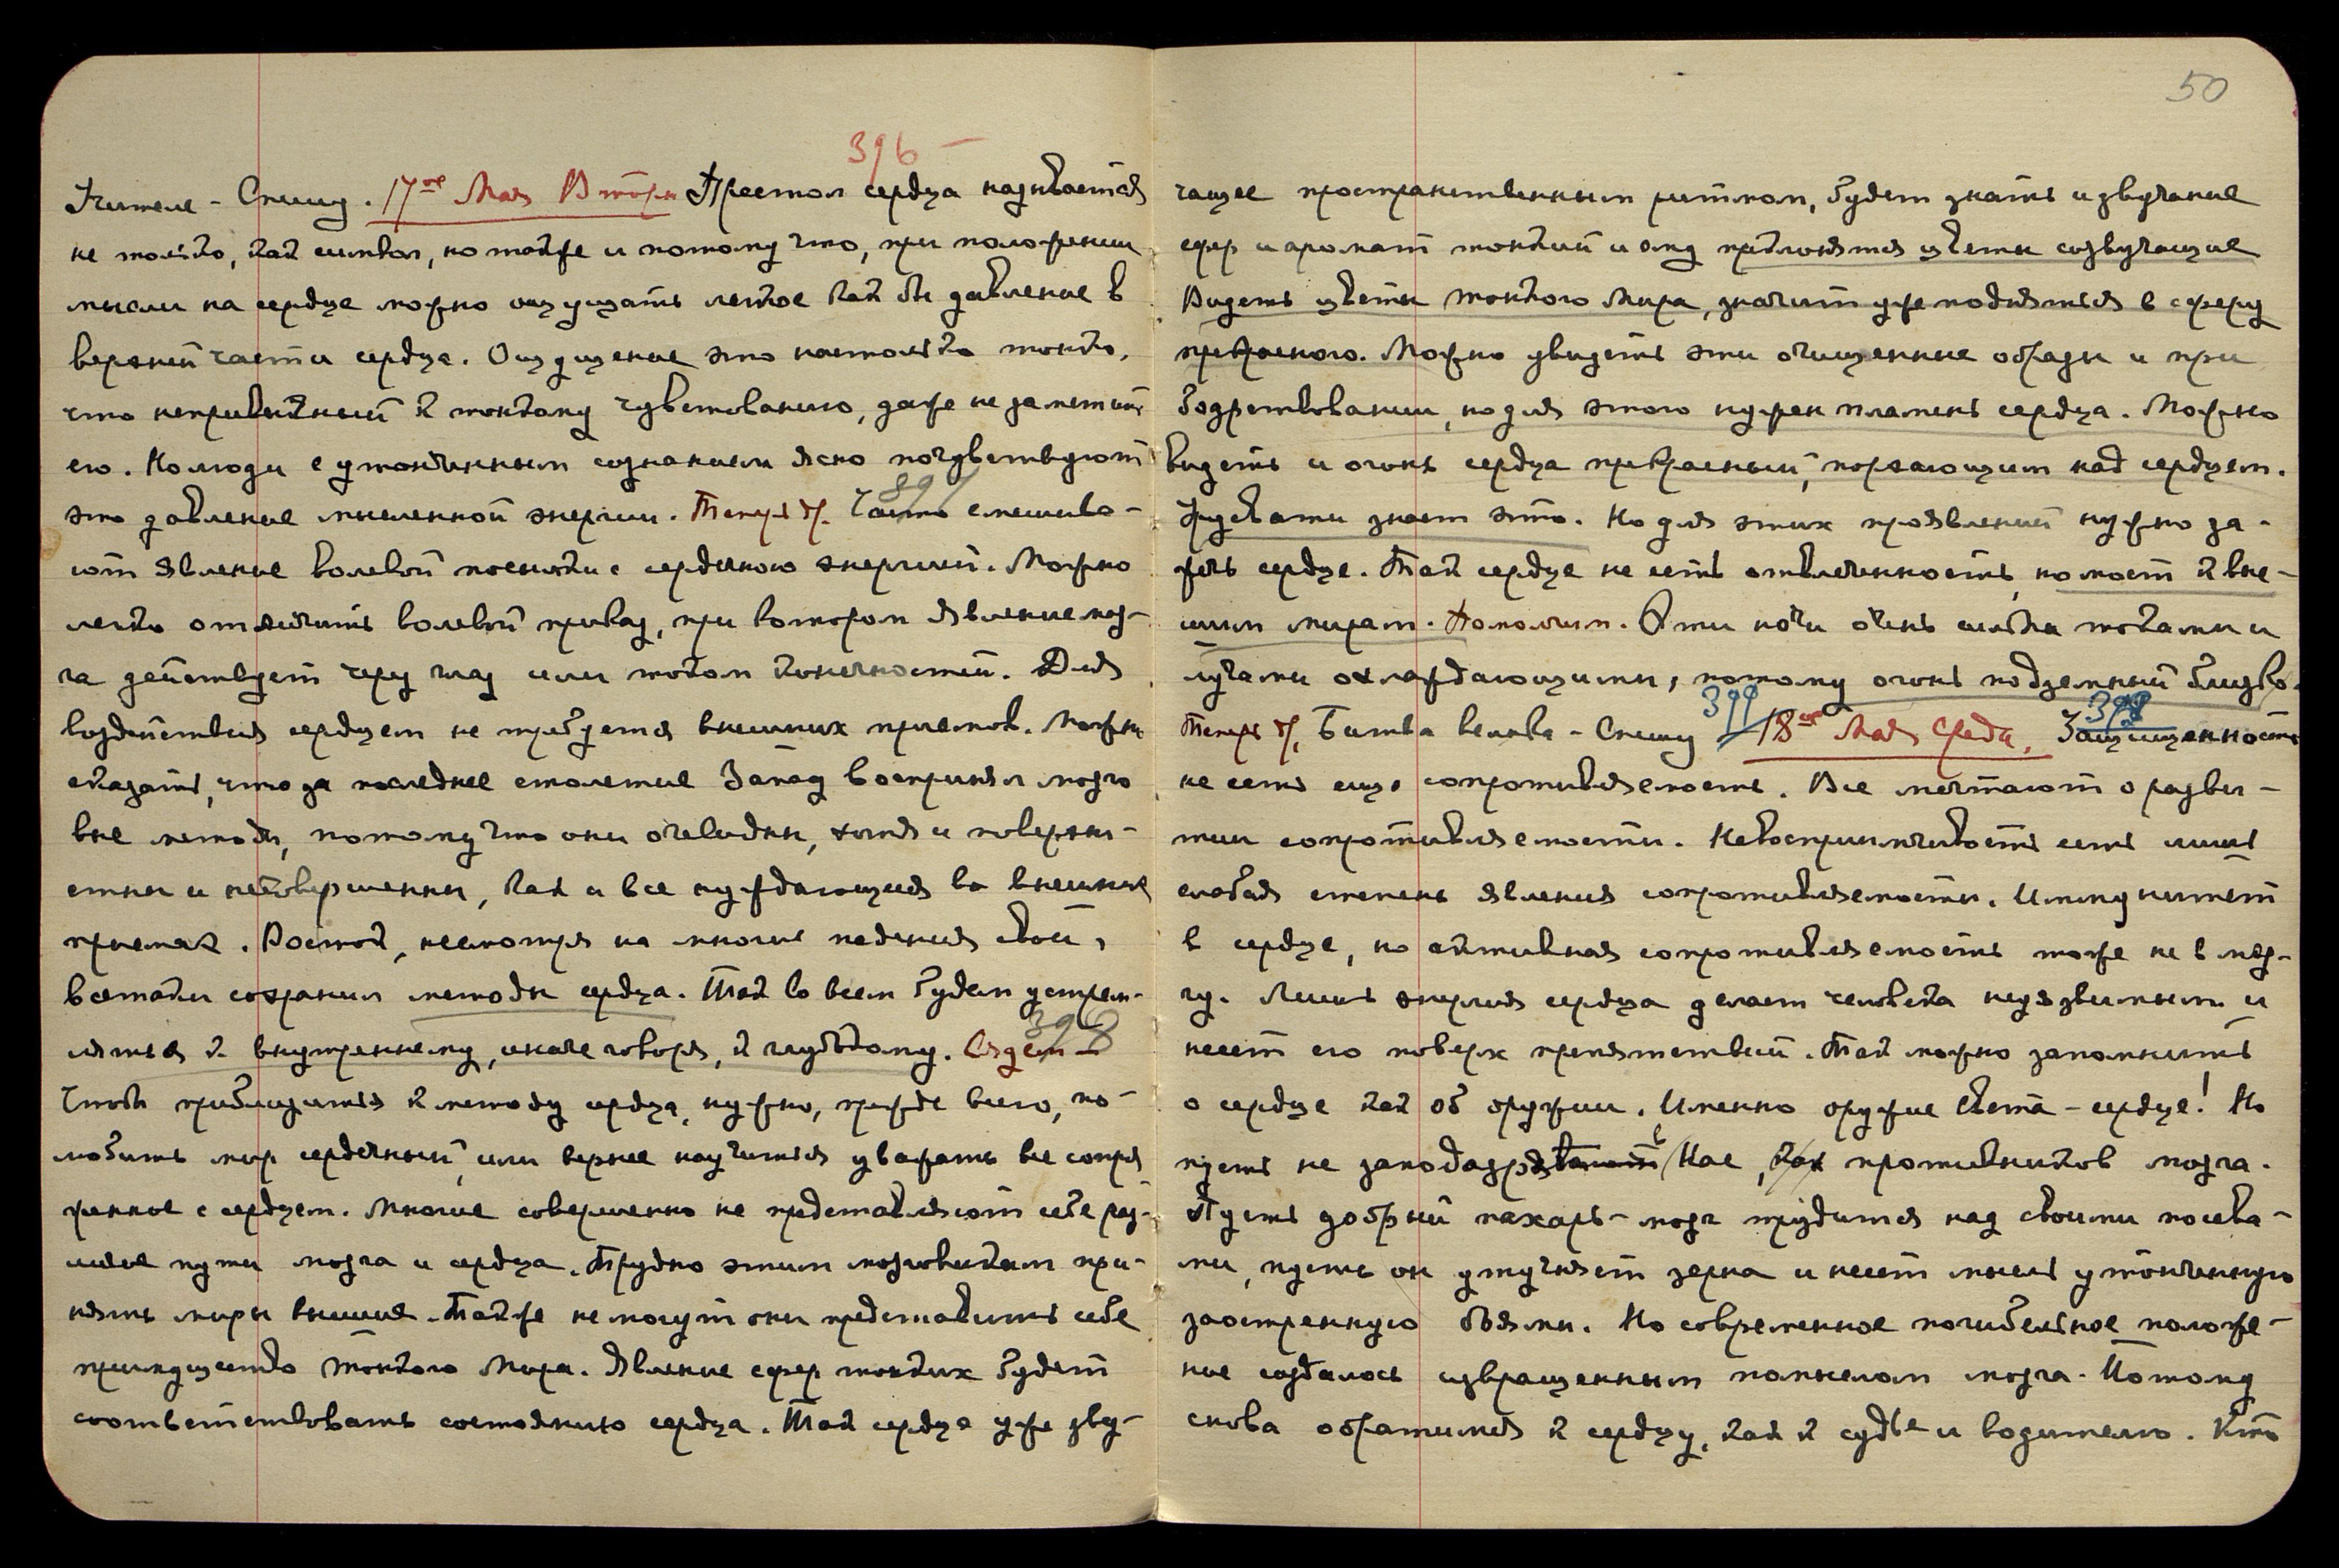 396 –
Учителе – Спешу. 17ое Мая Вторн Престол сердца называется
не только, как символ, но также и потому что, при положении
мысли на сердце можно ощущать легкое как бы давление в
верхней части сердца. Ощущение это настолько тонко,
что непривычный к тонкому чувствованию, даже не заметит
его. Но люди с утонченным сознанием ясно почувствуют
397
это давление мысленной энергии. Теперь Часто смешива–
ют явление волевой посылки с сердечною энергией. Можно
легко отличить волевой приказ, при котором явление моз–
га действует через глаз или током конечностей. Для
воздействия сердцем не требуется внешних приемов. Можно
сказать, что за последнее столетие Запад воспринял мозго
вые методы, потому что они очевидны, хотя и поверхно–
стны и несовершенны, как и все нуждающиеся во внешних
приемах. Восток, несмотря на многие падения свои,
всетаки сохранил методы сердца. Так во всем будем устрем–
398
ляться к внутреннему, иначе говоря, к глубокому. Сядем –
Чтобы приблизиться к методу сердца, нужно, прежде всего, по–
любить мир сердечный, или вернее научиться уважать все сопря
женное с сердцем. Многие совершенно не представляют себе раз–
личие пути мозга и сердца. Трудно этим мозговикам при–
нять миры высшие. Также не могут они представить себе
преимущество тонкого Мира. Явление сфер тонких будет
соответствовать состоянию сердца. Так сердце уже зву–
50
чащее пространственным ритмом, будет знать и звучание
сфер и аромат тонкий и ему преклонятся цветы созвучащие
Видеть цветы тонкого Мира, значит уже подняться в сферу
прекрасного. Можно увидеть эти очищенные образы и при
бодрствовании, но для этого нужен пламень сердца. Можно
видеть и огонь сердца прекрасный, порхающим над сердцем.
Урусвати знает это. Но для этих проявлений нужно за–
жечь сердце. Так сердце не есть отвлеченность, но мост к выс–
шим мирам. Помолчим. Эти ночи очень сильны токами и
лучами охлаждающими, потому огонь подземный близко.
399 398
Теперь Битва велика – Спешу 18ое Мая Среда. Защищенность
не есть еще сопротивляемость. Все мечтают о разви–
тии сопротивляемости. Невосприимчивость есть лишь
слабая степень явления сопротивляемости. Иммунитет
в сердце, но активная сопротивляемость тоже не в моз–
гу. Лишь энергия сердца делает человека неуязвимым и
несет его поверх препятствий. Так можно запомнить
о сердце как об оружии. Именно оружие Света – сердце! Но
пусть не заподазрят Нас, как противников мозга.
Пусть добрый пахарь – мозг трудится над своими посева–
ми, пусть он утучняет зерна и несет мысль утонченную
заостренную бъями. Но современное погибельное положе–
ние создалось извращенным помыслом мозга. Потому
снова обратимся к сердцу, как к судье и водителю. Кто